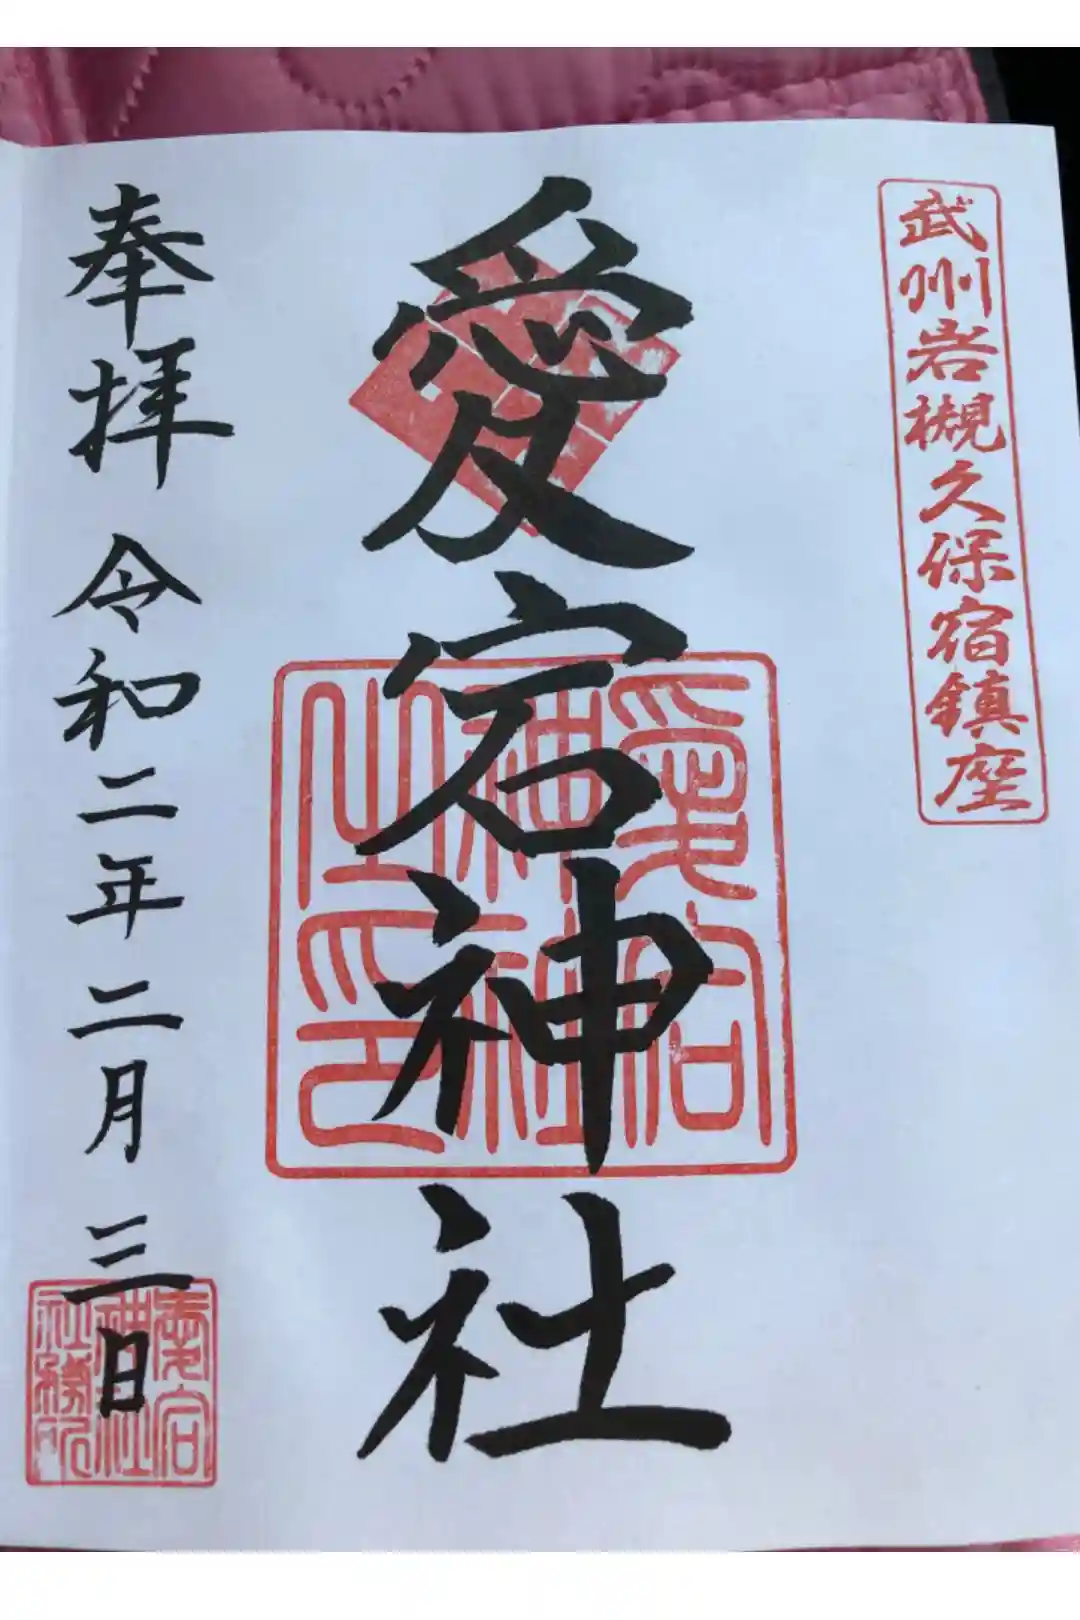 武州岩槻久保宿鎮座
愛宕神社
愛宕
神社
之印
奉拝 令和二年二月三日
愛宕
神社
社務所